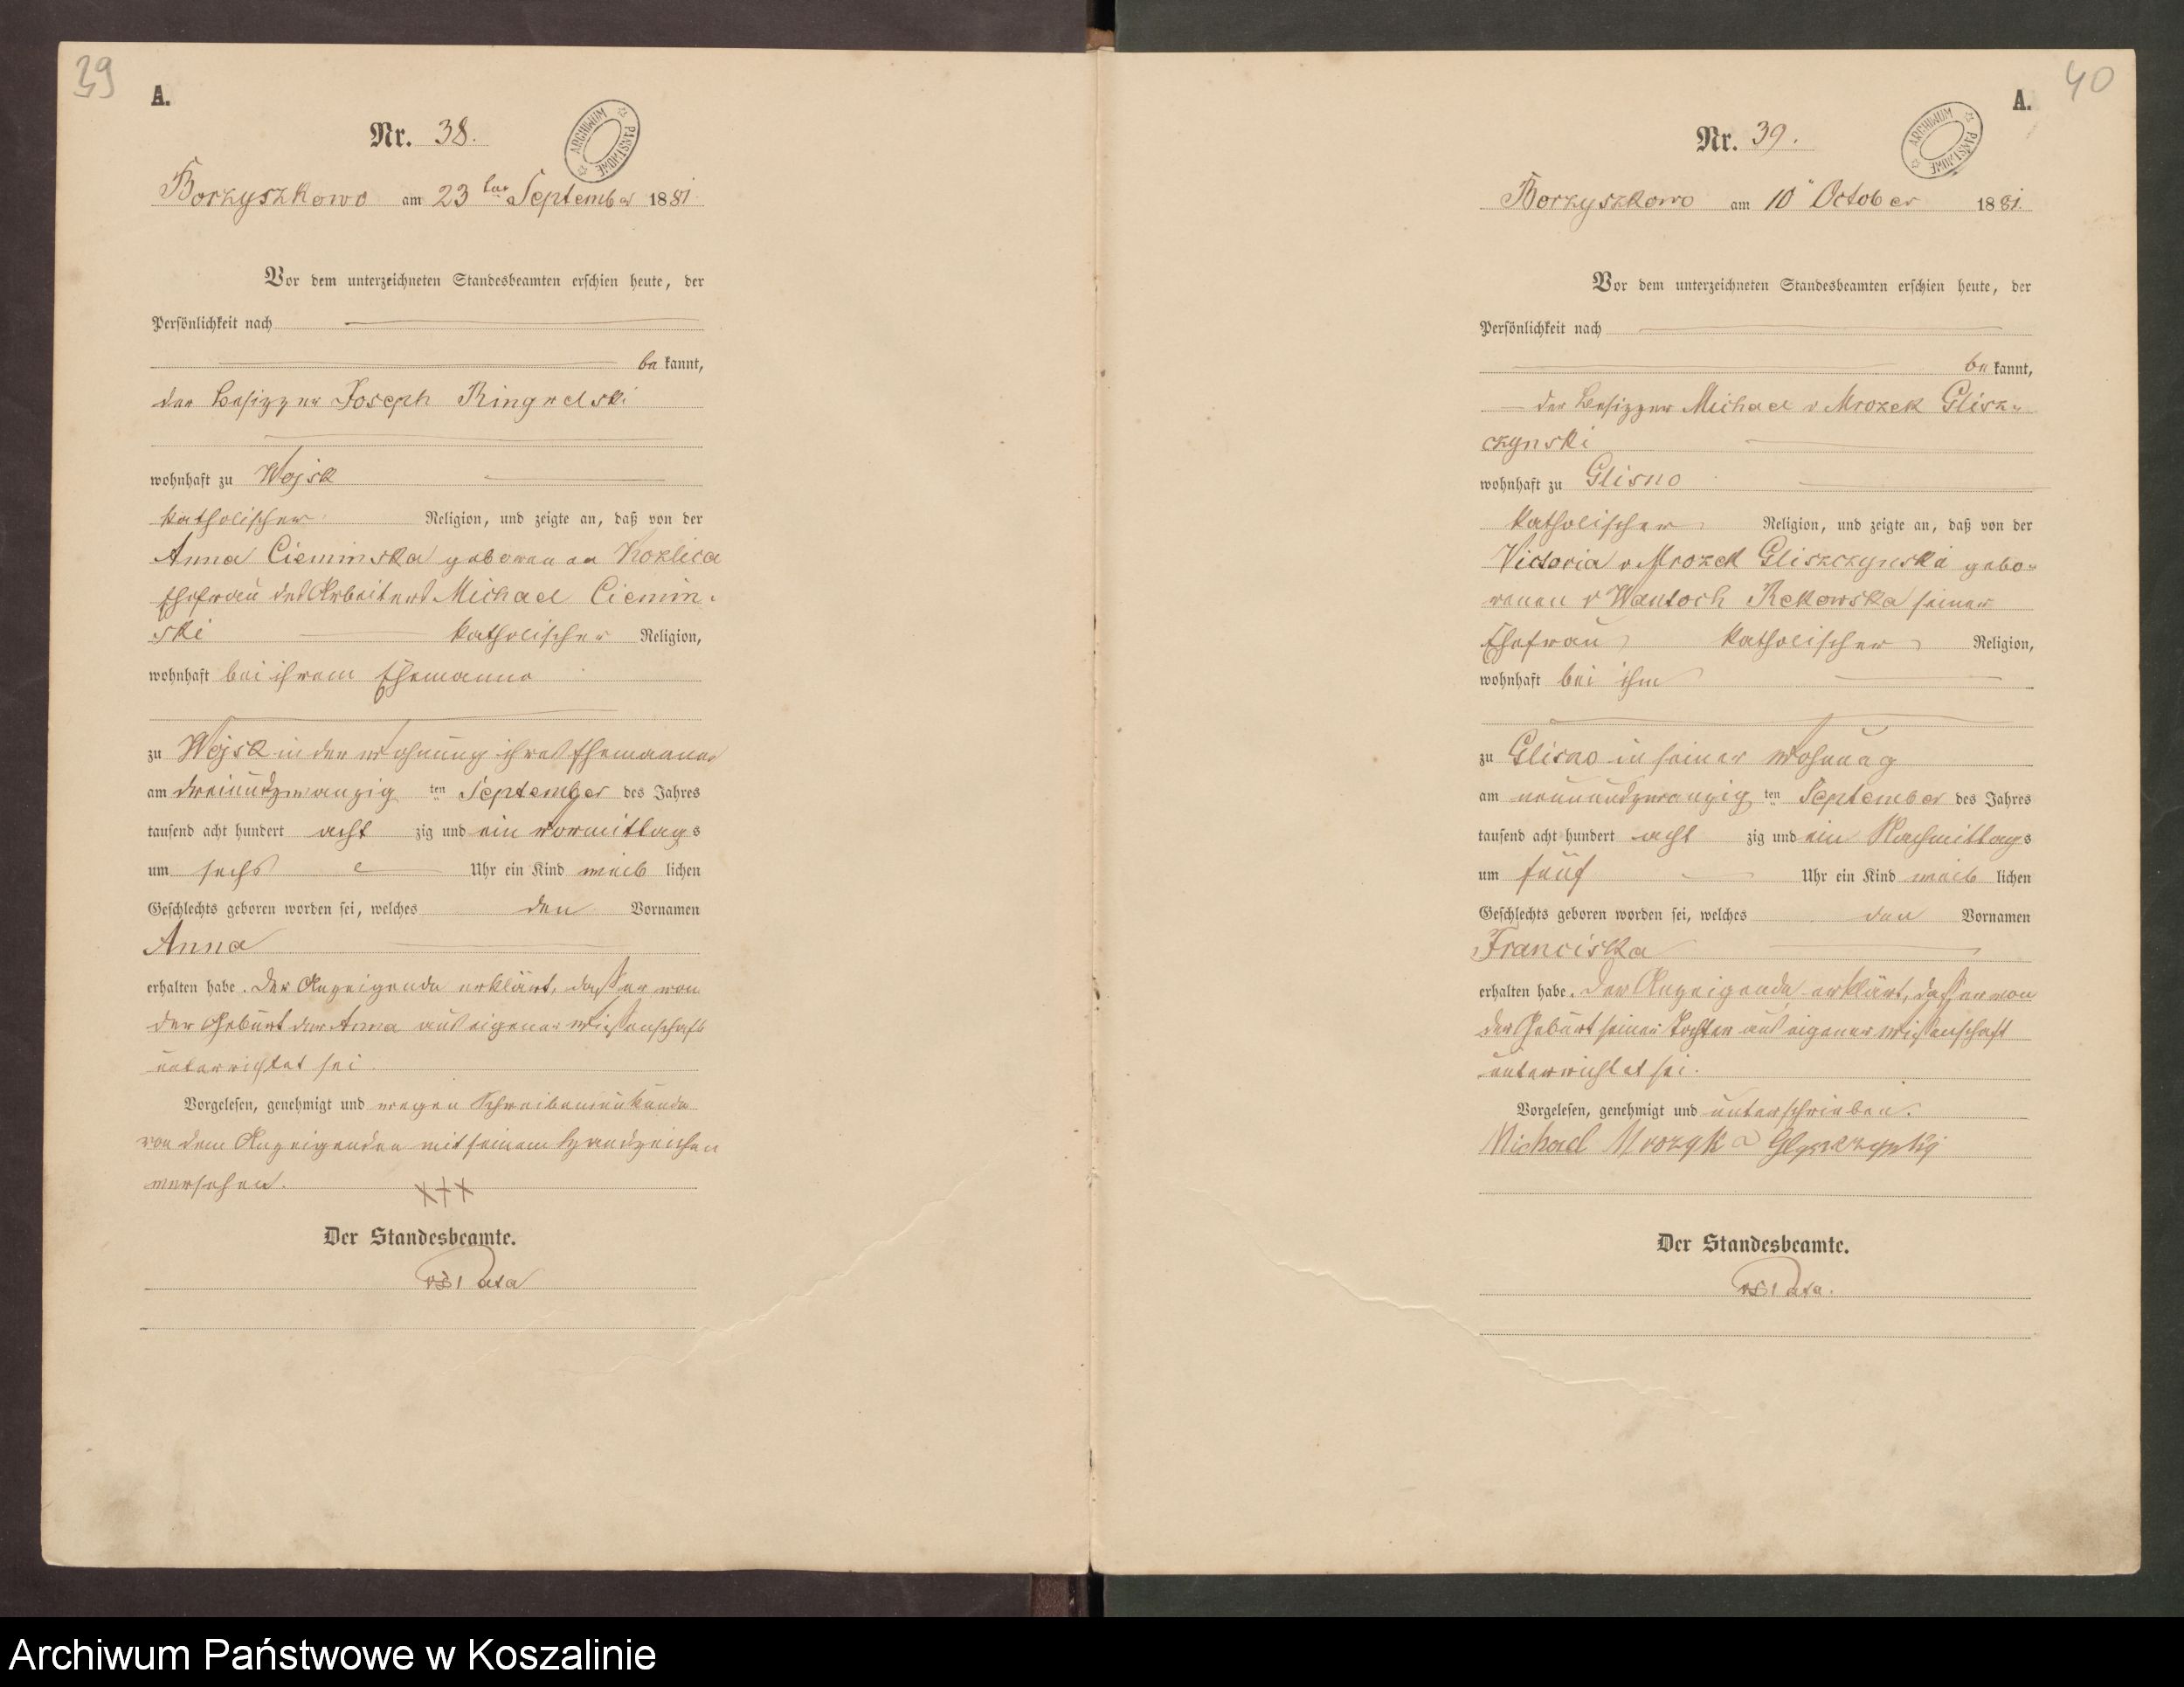 39
A.
Nr. 38.
ARCHIWUM PAŃSTWOWE
Borzyszkowo am 23 ten September 1881.
Vor dem unterzeichneten Standesbeamten erschien heute, der
Persönlichkeit nach
be kannt,
der Besitzer Joseph Ringwelski
wohnhaft zu Wojsk
katholischer Religion, und zeigte an, daß von der
Anna Cieminska geborenen Kozlica
Ehefrau des Arbeiters Michael Ciemin-
ski katholischer Religion,
wohnhaft bei ihrem Ehemanne
zu Wojsk in der Wohnung ihres Ehemannes
am dreiundzwanzig ten September des Jahres
tausend acht hundert acht zig und ein vormittags
um sechs Uhr ein Kind weib lichen
Geschlechts geboren worden sei, welches den Vornamen
Anna
erhalten habe. Der Anzeigende erklärt, dass er von
der Geburt der Anna aus eigener Wissenschaft
unterrichtet sei.
Vorgelesen, genehmigt und wegen Schreibensunkunde
von dem Anzeigenden mit seinem Handzeichen
versehen. +++
Der Standesbeamte.
40
A.
Nr. 39.
ARCHIWUM PAŃSTWOWE
Borzyszkowo am 10 October 1881.
Vor dem unterzeichneten Standesbeamten erschien heute, der
Persönlichkeit nach
be kannt,
der Besitzer Michael v Mrozek Glisz-
czynski
wohnhaft zu Glisno
katholischer Religion, und zeigte an, daß von der
Victoria v Mrozek Gliszczynska gebo-
renen v Wantoch Rekowska seiner
Ehefrau katholischer Religion,
wohnhaft bei ihm
zu Glisno in seiner Wohnung
am neunundzwanzig ten September des Jahres
tausend acht hundert acht zig und ein Nachmittags
um fünf Uhr ein Kind weib lichen
Geschlechts geboren worden sei, welches den Vornamen
Franciska
erhalten habe. Der Anzeigende erklärt, dass er von
der Geburt seiner Tochter aus eigener Wissenschaft
unterrichtet sei.
Vorgelesen, genehmigt und unterschrieben.
Michael Mrozyk
Der Standesbeamte.
Archiwum Państwowe w Koszalinie